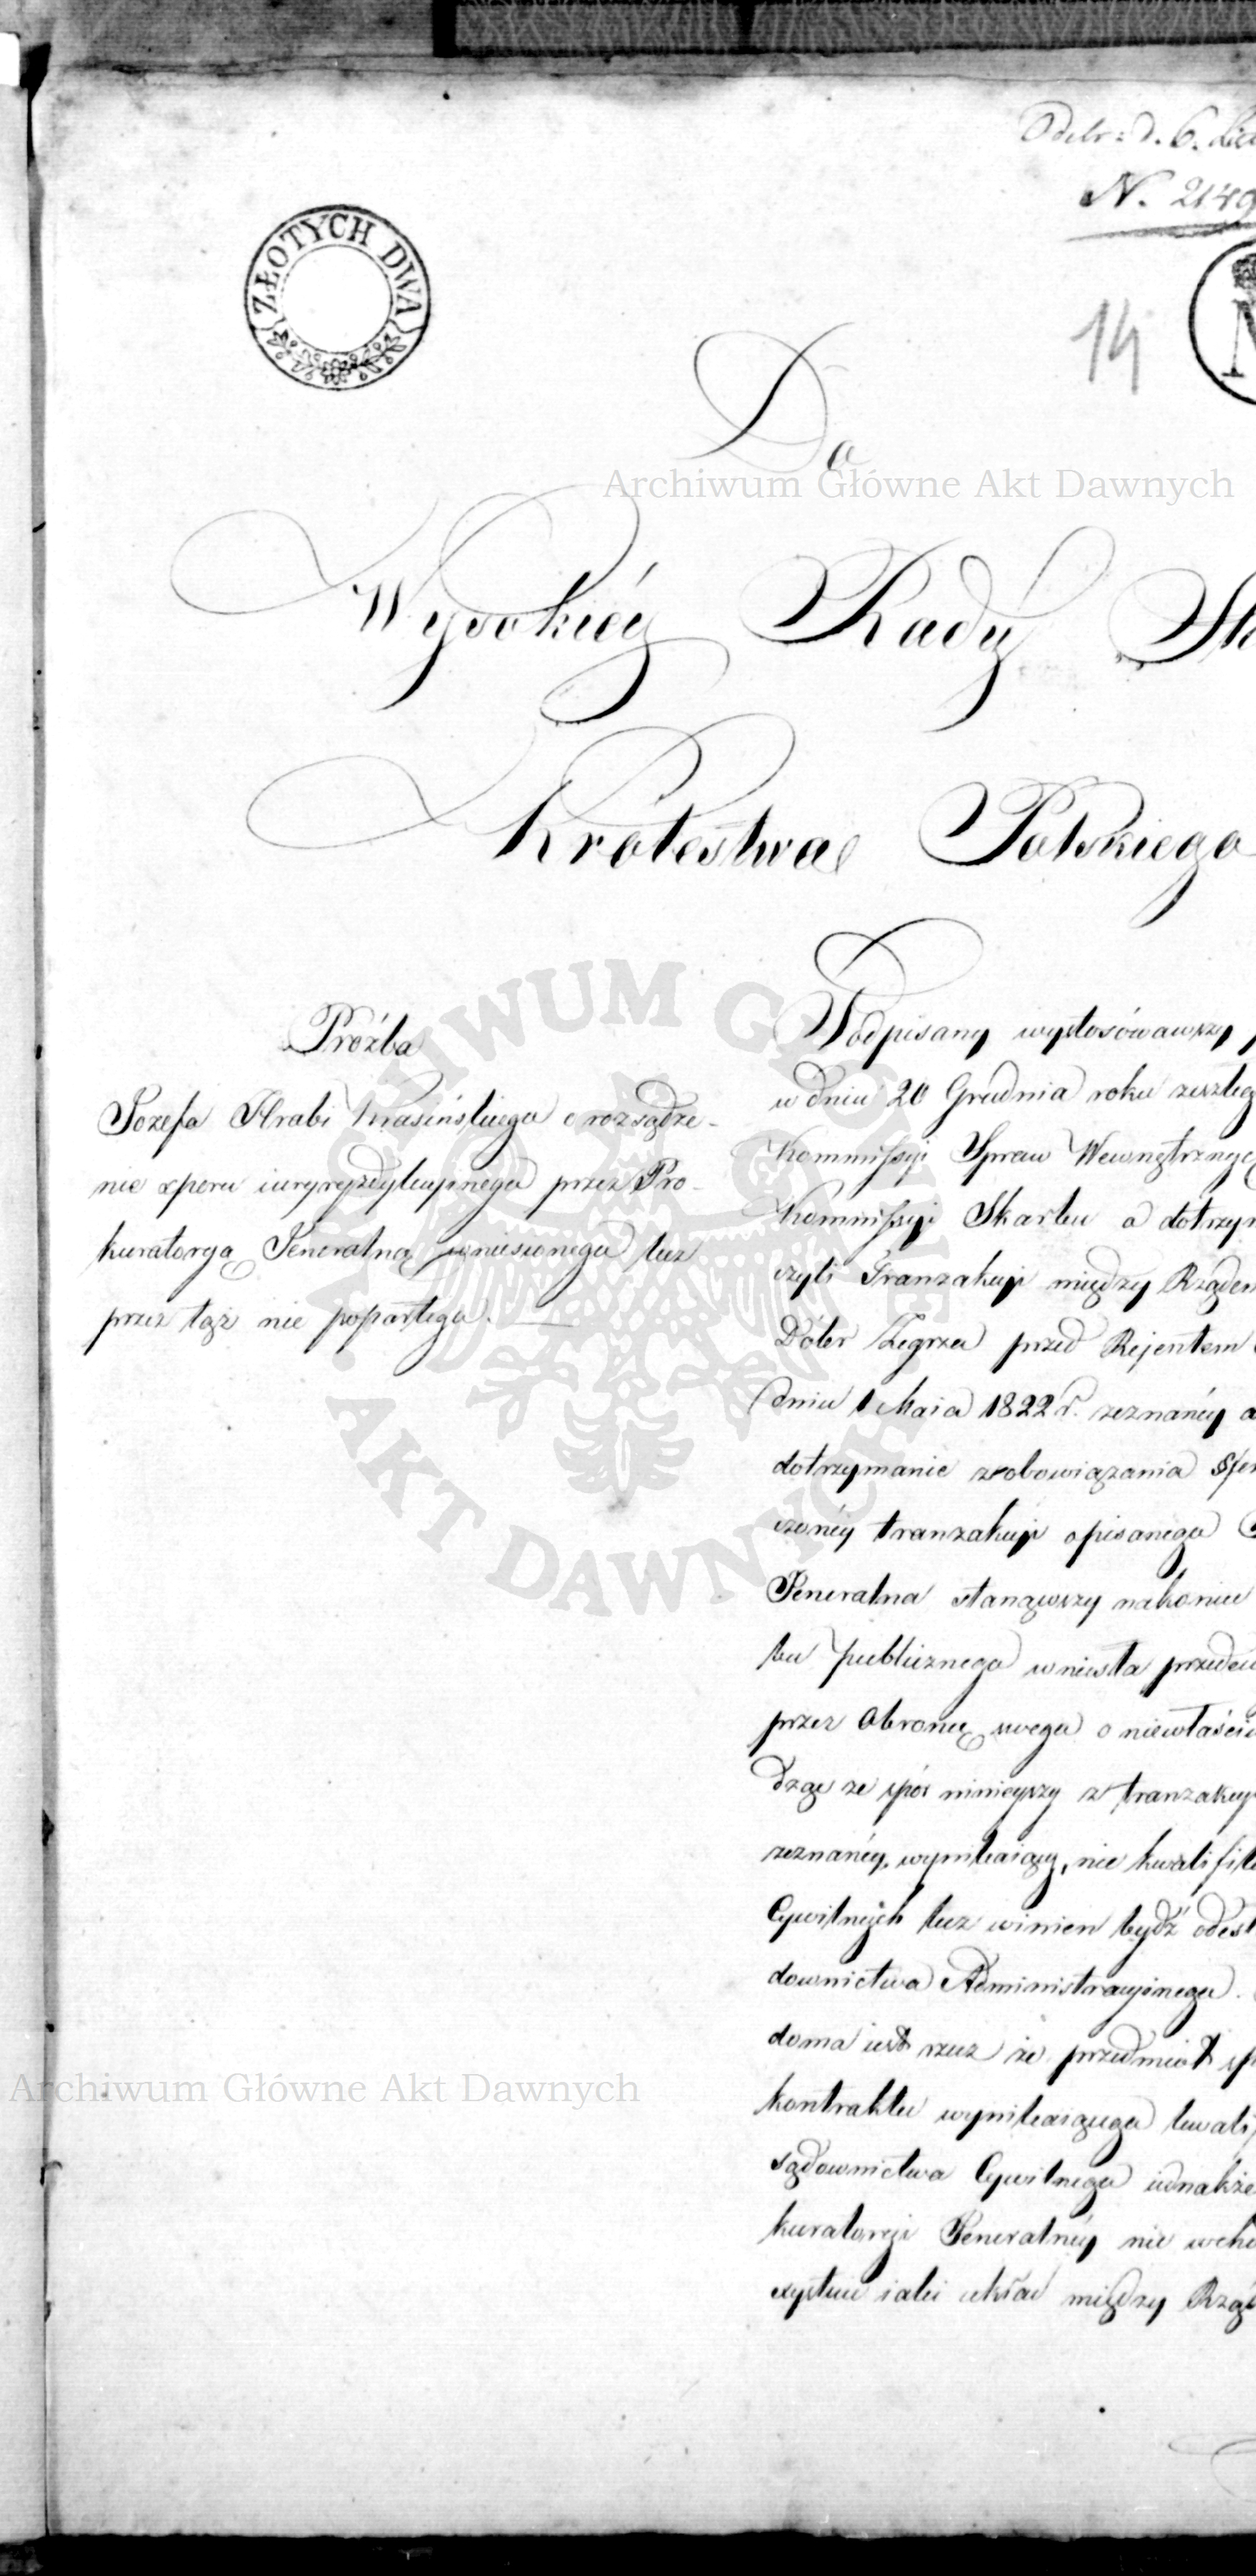 Odebr: d. 6.
N. 2149
ZŁOTYCH DWA
14
Do
Archiwum Główne Akt Dawnych
Wysokiéy Rady
Królestwa Polskiego
Proźba
Jozefa Hrabi Krasińskiego o rozsądze-
nie sporu iuryzdykcyinego przez Pro-
kuratoryą Jeneralną wniesionego lecz
przez tąż nie popartego.
Podpisany wystosówawszy
w dniu 20 Grudnia roku zeszłeg
Kommissyi Spraw Wewnętrznyc
Kommissyi Skarbu a dotrzym
czyli Tranzakcyi między Rządem
Dóbr Zegrza przed Rejentem
dniu 1 Maia 1822 r. zeznanéy a
dotrzymanie zobowiązania
czonéy tranzakcyi opisanego
Jeneralna stanąwszy nakoniec
bu publicznego wniosła przedew
przez Obronę swego o niewłaści
dząc ze spór ninieyszy z tranzakcyi
zeznanéy, wynikaiący, nie kwalifik
Cywilnych lecz winien bydź odesł
downictwa Administracyinego.
doma iest rzecz że przedmiot sp
kontraktu wynikaiącego kwalif
sądownictwa Cywilnego iednakże
kuratoryi Jeneralnéy nie wcho
iaki układ między Rząd
ARCHIWUM GŁÓWNE
AKT DAWNYCH
Archiwum Główne Akt Dawnych